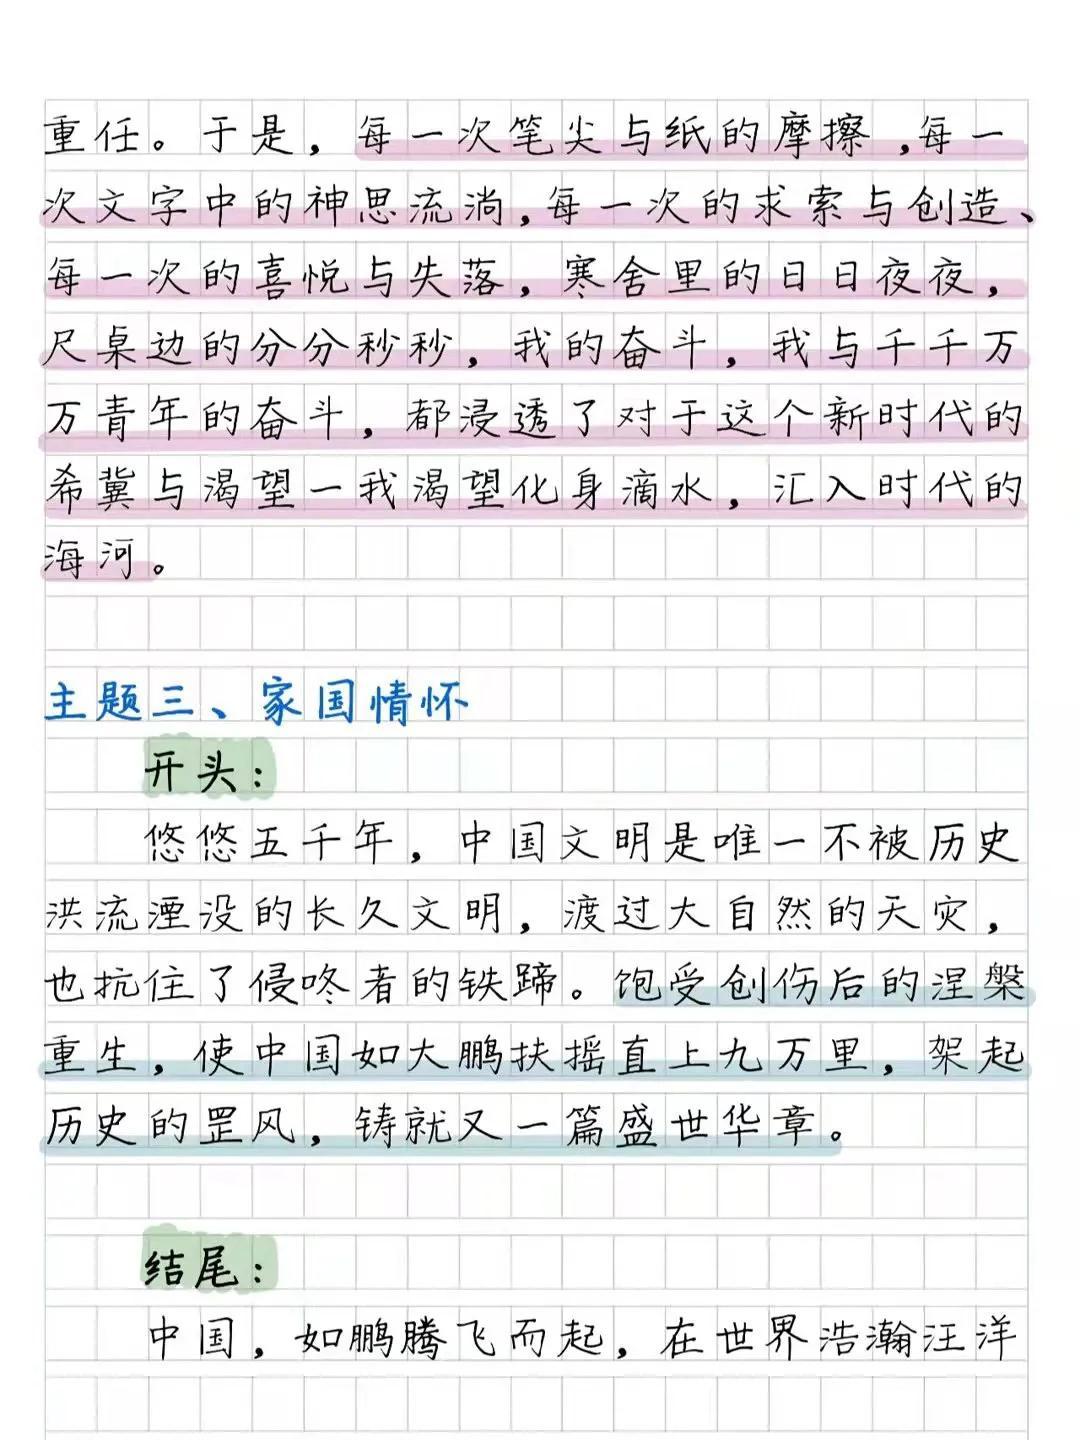 重任。于是，每一次笔尖与纸的摩擦，每一
次文字中的神思流淌，每一次的求索与创造、
每一次的喜悦与失落，寒舍里的日日夜夜，
尺桌边的分分秒秒，我的奋斗，我与千千万
万青年的奋斗，都浸透了对于这个新时代的
希冀与渴望一我渴望化身滴水，汇入时代的
海河。
主题三、家国情怀
开头：
悠悠五千年，中国文明是唯一不被历史
洪流湮没的长久文明，渡过大自然的天灾，
也抗住了侵咚者的铁蹄。饱受创伤后的涅槃
重生，使中国如大鹏扶摇直上九万里，架起
历史的罡风，铸就又一篇盛世华章。
结尾：
中国，如鹏腾飞而起，在世界浩瀚汪洋